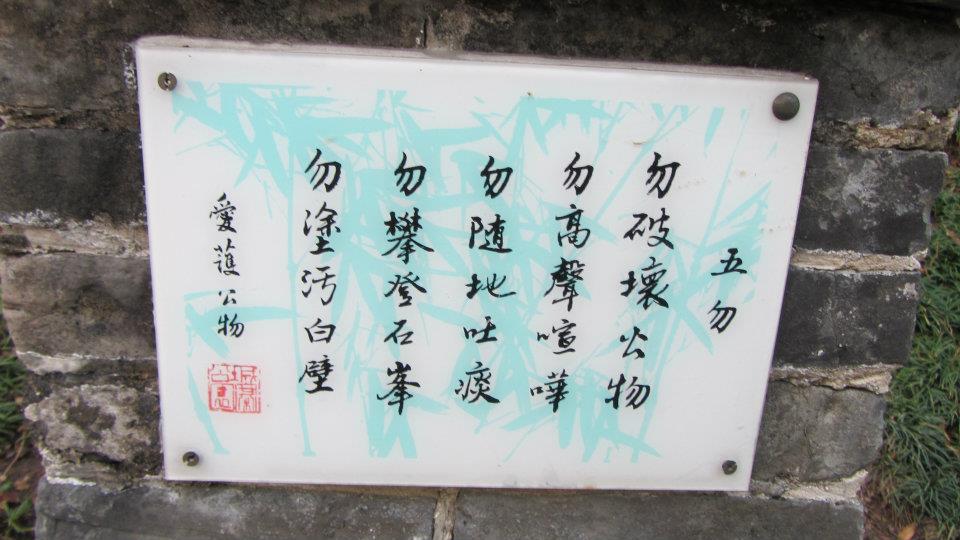 五勿
勿破壞公物
勿高聲喧嘩
勿随地吐痰
勿攀登石峯
勿塗汚白壁
愛護公物